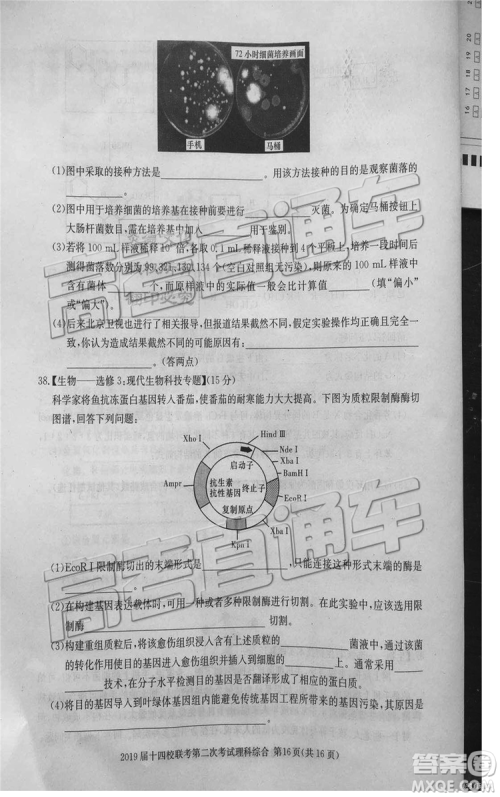 72小时细菌培养画面
手机
马桶
(1)图中采取的接种方法是。用该方法接种的目的是观察菌落的
。
(2)图中用于培养细菌的培养基在接种前要进行灭菌。为确定马桶按钮上
大肠杆菌的数量,需在培养基中加入用于鉴别。
(3)若将100 mL样液稀释倍,各取0.1 mL稀释液接种到4个培养基中,一段时间后
测得菌落数分别为99,321,130,134个(空白对照组无污染),则原来的100 mL样液中
含有菌体个,该测定值与实际值相比一般会比计算值(填“偏小”
或“偏大”)。
(4)后来北京卫视也进行了相关生物报导,但结果截然不同,可能操作正确且完全一
致,你认为可能导致结果截然不同的原因是、
。(答两点)
38.【生物——选修3:现代生物科技专题】(15分)
科学家将鱼抗冻蛋白基因转入番茄,使番茄的耐寒能力大大提高。下图为质粒限制酶酶切
图谱,回答下列问题:
Xho Ⅰ
Hind Ⅲ
Nde Ⅰ
Xba Ⅰ
BamH Ⅰ
启动子
Ampr
抗生素
抗性基因
终止子
EcoR Ⅰ
复制原点
Xba Ⅰ
Kpn Ⅰ
(1)EcoR Ⅰ限制酶切出的末端形式是,只能连接这种形式末端的酶是
。
(2)在构建基因表达载体时,可用限制酶进行切割。在此实验中,应该使用限
制酶切割。
(3)构建重组质粒后,将该愈伤组织浸入含有上述质粒的菌液中,通过该菌
的转化作用使目的基因进入该愈伤组织的细胞,并插入。通常采用
技术,在分子水平检测目的基因是否翻译形成了相应的蛋白质。
(4)将目的基因导入到叶绿体基因组内能避免传统基因工程所带来的基因污染,其原因是
。
2019届十四校联考第二次考试理科综合 第16页(共16页)
高考直通车
高考直通车
答案圈